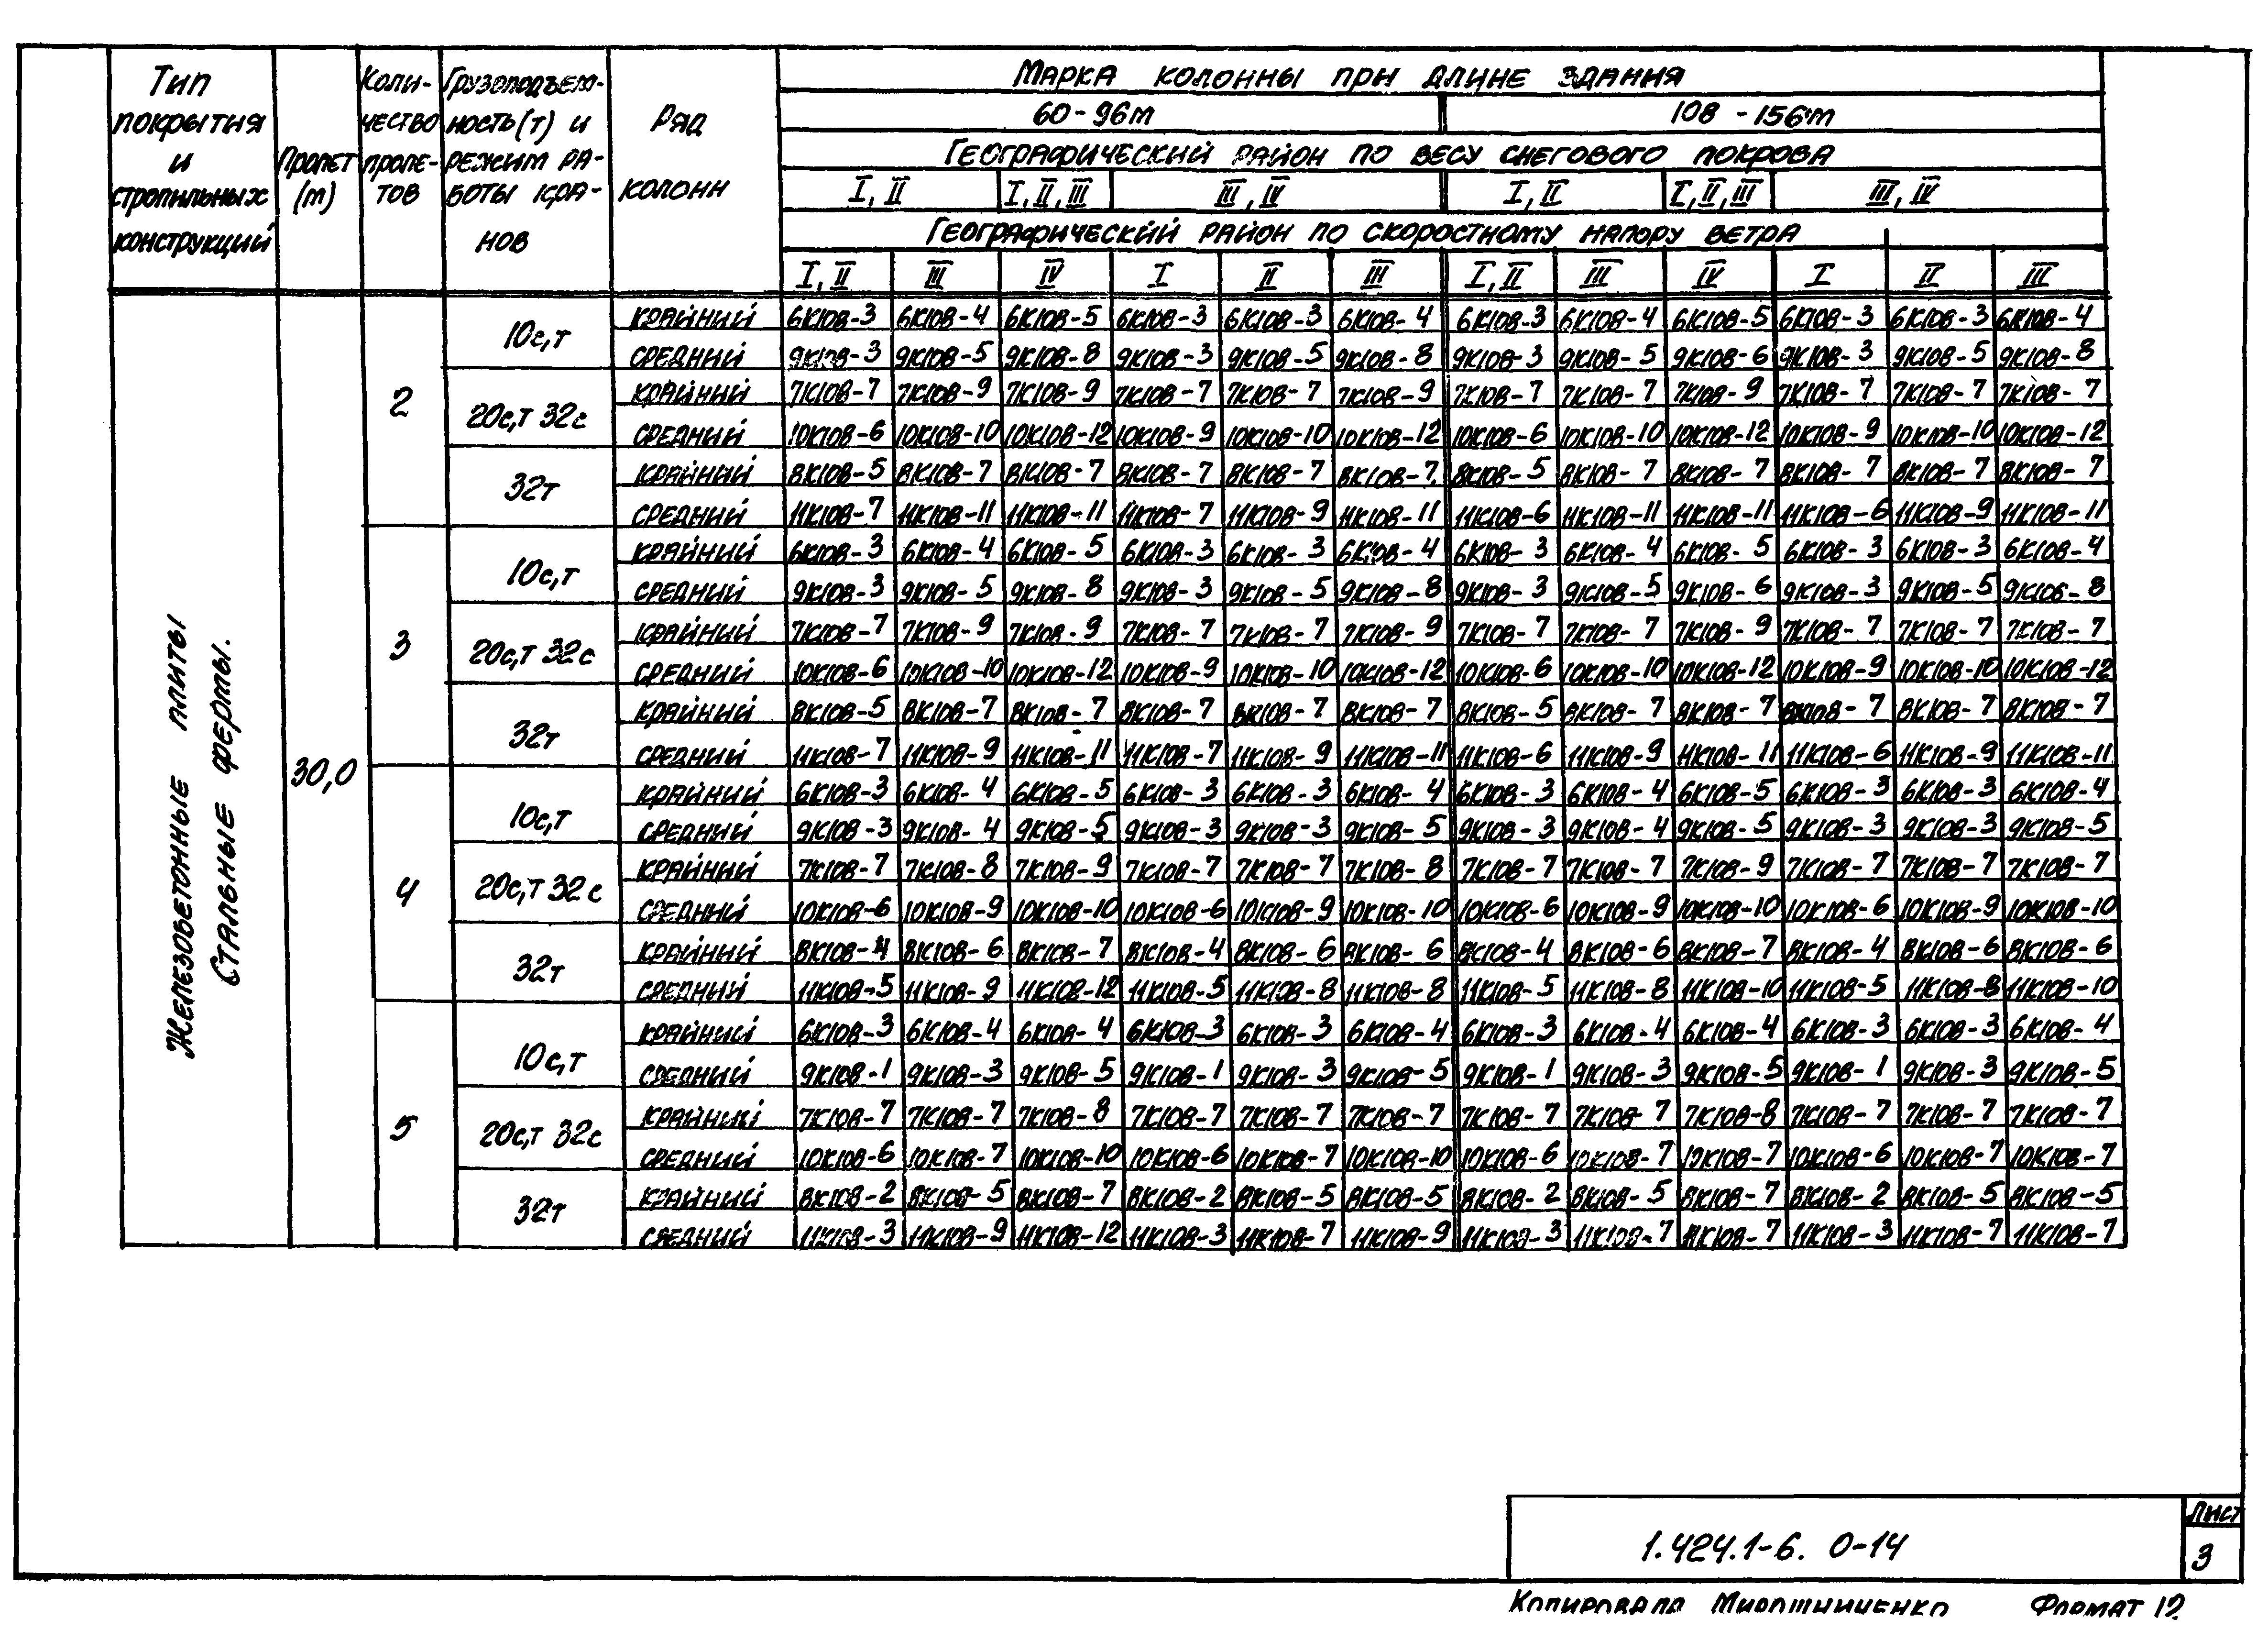 Тип покрытия и стропильных конструкций
Пролет (м)
Количество пролетов
Грузоподъемность (т) и режим работы кранов
Ряд колонн
Марка колонны при длине здания
60-96м 108-156м
Географический район по весу снегового покрова
I, II I, II, III III, IV I, II I, II, III III, IV
Географический район по скоростному напору ветра
I, II III IV I II III I, II III IV I II III
Железобетонные плиты
Стальные фермы.
30,0
2
10с,т
крайний 6К108-3 6К108-4 6К108-5 6К108-3 6К108-3 6К108-4 6К108-3 6К108-4 6К108-5 6К108-3 6К108-3 6К108-4
средний 9К108-3 9К108-5 9К108-8 9К108-3 9К108-5 9К108-8 9К108-3 9К108-5 9К108-6 9К108-3 9К108-5 9К108-8
20с,т 32с
крайний 7К108-7 7К108-9 7К108-9 7К108-7 7К108-7 7К108-9 7К108-7 7К108-7 7К108-9 7К108-7 7К108-7 7К108-7
средний 10К108-6 10К108-10 10К108-12 10К108-9 10К108-10 10К108-12 10К108-6 10К108-10 10К108-12 10К108-9 10К108-10 10К108-12
32т
крайний 8К108-5 8К108-7 8К108-7 8К108-7 8К108-7 8К108-7 8К108-5 8К108-7 8К108-7 8К108-7 8К108-7 8К108-7
средний 11К108-7 11К108-11 11К108-11 11К108-7 11К108-9 11К108-11 11К108-6 11К108-11 11К108-11 11К108-6 11К108-9 11К108-11
3
10с,т
крайний 6К108-3 6К108-4 6К108-5 6К108-3 6К108-3 6К108-4 6К108-3 6К108-4 6К108-5 6К108-3 6К108-3 6К108-4
средний 9К108-3 9К108-5 9К108-8 9К108-3 9К108-5 9К108-8 9К108-3 9К108-5 9К108-6 9К108-3 9К108-5 9К108-8
20с,т 32с
крайний 7К108-7 7К108-9 7К108-9 7К108-7 7К108-7 7К108-9 7К108-7 7К108-7 7К108-9 7К108-7 7К108-7 7К108-7
средний 10К108-6 10К108-10 10К108-12 10К108-9 10К108-10 10К108-12 10К108-6 10К108-10 10К108-12 10К108-9 10К108-10 10К108-12
32т
крайний 8К108-5 8К108-7 8К108-7 8К108-7 8К108-7 8К108-7 8К108-5 8К108-7 8К108-7 8К108-7 8К108-7 8К108-7
средний 11К108-7 11К108-9 11К108-11 11К108-7 11К108-9 11К108-11 11К108-6 11К108-9 11К108-11 11К108-6 11К108-9 11К108-11
4
10с,т
крайний 6К108-3 6К108-4 6К108-5 6К108-3 6К108-3 6К108-4 6К108-3 6К108-4 6К108-5 6К108-3 6К108-3 6К108-4
средний 9К108-3 9К108-4 9К108-5 9К108-3 9К108-3 9К108-5 9К108-3 9К108-4 9К108-5 9К108-3 9К108-3 9К108-5
20с,т 32с
крайний 7К108-7 7К108-8 7К108-9 7К108-7 7К108-7 7К108-8 7К108-7 7К108-7 7К108-9 7К108-7 7К108-7 7К108-7
средний 10К108-6 10К108-9 10К108-10 10К108-6 10К108-9 10К108-10 10К108-6 10К108-9 10К108-10 10К108-6 10К108-9 10К108-10
32т
крайний 8К108-4 8К108-6 8К108-7 8К108-4 8К108-6 8К108-6 8К108-4 8К108-6 8К108-7 8К108-4 8К108-6 8К108-6
средний 11К108-5 11К108-9 11К108-12 11К108-5 11К108-8 11К108-8 11К108-5 11К108-8 11К108-10 11К108-5 11К108-8 11К108-10
5
10с,т
крайний 6К108-3 6К108-4 6К108-4 6К108-3 6К108-3 6К108-4 6К108-3 6К108-4 6К108-4 6К108-3 6К108-3 6К108-4
средний 9К108-1 9К108-3 9К108-5 9К108-1 9К108-3 9К108-5 9К108-1 9К108-3 9К108-5 9К108-1 9К108-3 9К108-5
20с,т 32с
крайний 7К108-7 7К108-7 7К108-8 7К108-7 7К108-7 7К108-7 7К108-7 7К108-7 7К108-8 7К108-7 7К108-7 7К108-7
средний 10К108-6 10К108-7 10К108-10 10К108-6 10К108-7 10К108-10 10К108-6 10К108-7 10К108-7 10К108-6 10К108-7 10К108-7
32т
крайний 8К108-2 8К108-5 8К108-7 8К108-2 8К108-5 8К108-5 8К108-2 8К108-5 8К108-7 8К108-2 8К108-5 8К108-5
средний 11К108-3 11К108-9 11К108-12 11К108-3 11К108-7 11К108-9 11К108-3 11К108-7 11К108-7 11К108-3 11К108-7 11К108-7
1.424.1-6. 0-14
Лист
3
Копировала Мирошниченко Формат 12